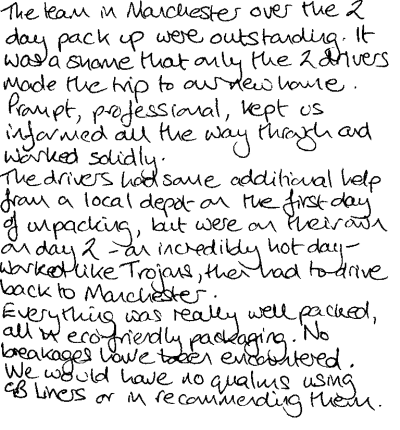 The team in Manchester over the 2
day pack up were outstanding. It
was a shame that only the 2 drivers
made the trip to our new home.
Prompt, professional, kept us
informed all the way through and
worked solidly.
The drivers had some additional help
from a local depot on the first day
of unpacking, but were on their own
on day 2 - an incredibly hot day -
worked like Trojans, then had to drive
back to Manchester.
Everything was really well packed,
all in eco-friendly packaging. No
breakages have been encountered.
We would have no qualms using
GB Liners or in recommending them.